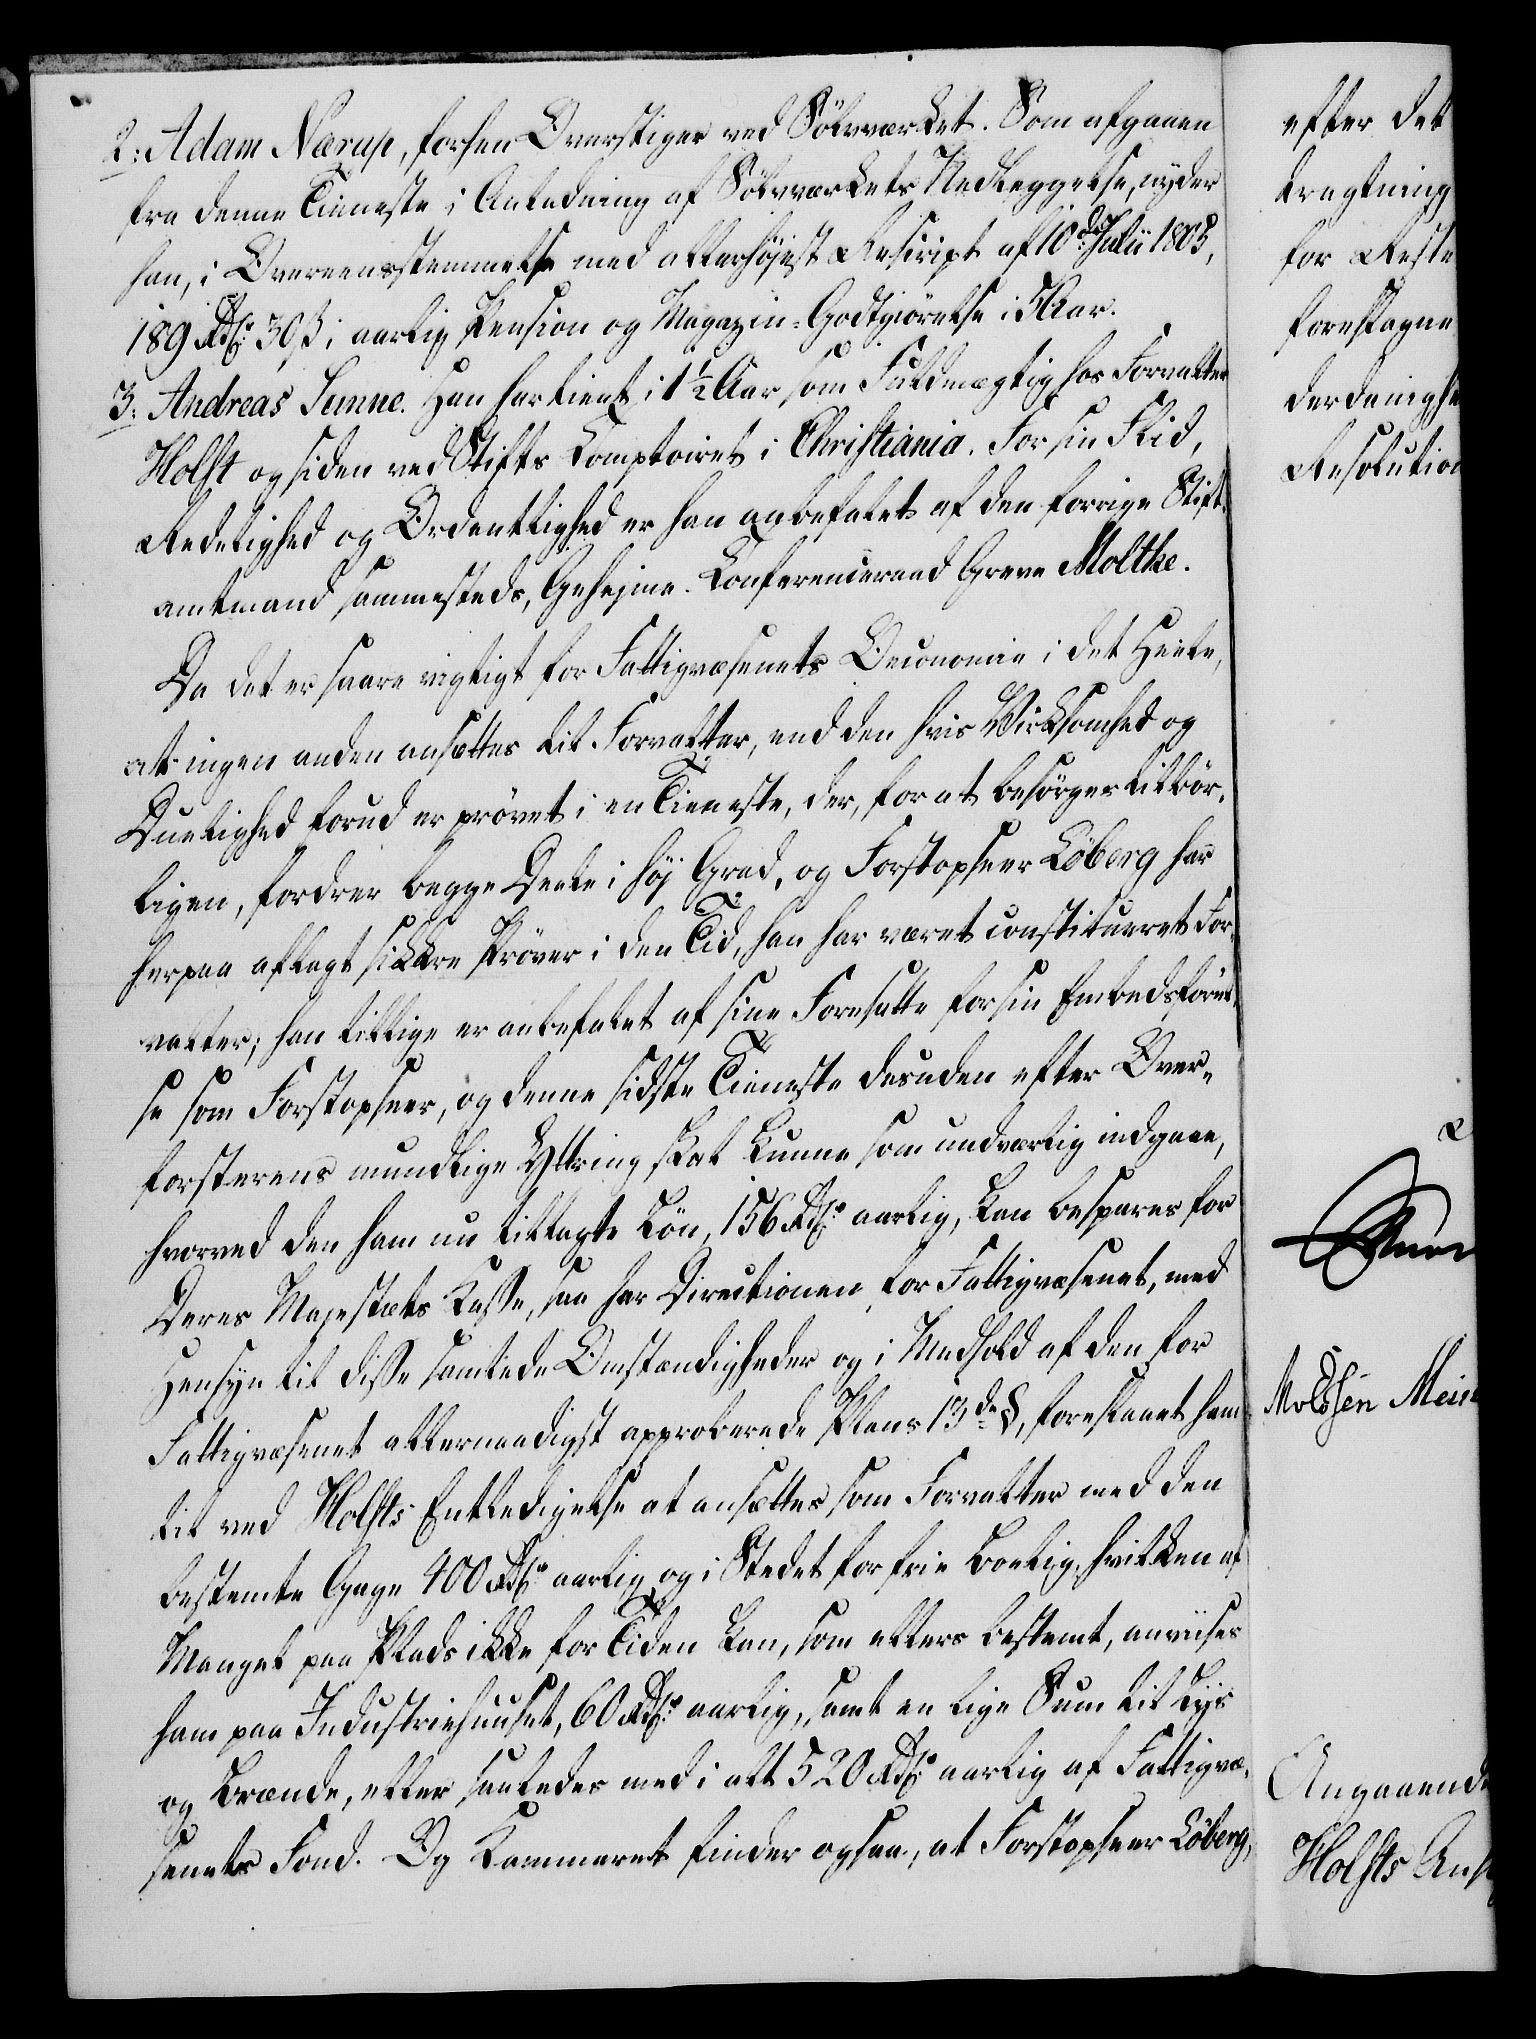 2: Adam Nærup, forhen Overstiger ved Sölvværket. Som afgaaen
fra denne Tieneste i Anledning af Sölvværkets Nedleggelse, nyder
han, i Overeensstemmelse med allerhöjest Rescript af 10de Julii 1805,
189 Rdlr: 30 s i aarlig Pension og Magazin-Godtgiörelse i 5 Aar.
3: Andreas Semne. Han har tient i 1½ Aar som Fuldmægtig hos Forvalter
Holst og siden ved Stifts Comptoiret i Christiania. For sin Flid,
Redelighed og Ordentlighed er han anbefalet af den forrige Stift-
amtmand sammesteds, Gehejme-Conferenceraad Greve Moltke.
Da det er saare vigtigt for Fattigvæsenets Oeconomie i det Heele,
at ingen anden ansættes til Forvalter, end den hvis Virksomhed og
Duelighed forud er prövet i en Tieneste, der, for at besörges tilbör-
ligen, fordrer begge Deele i höj Grad, og Forstopseer Löberg har
herpaa aflagt sikkre Pröver i den Tid, han har været constitueret For-
valter; han tillige er anbefalet af sine Foresatte for sin Embedsförel-
se som Forstopseer, og denne sidste Tieneste desuden efter Over-
forsterens mundtlige Yttring skal kunne som undværlig indgaae,
hvorved den ham nu tillagte Lön, 156 Rdlr: aarlig, kan bespares for
Deres Majestæts Kasse, saa har Directionen for Fattigvæsenet, med
Hensyn til disse samtlede Omstændigheder og i Medhold af den for
Fattigvæsenet allernaadigst approberede Plans 13de §, foreslaaet ham
til ved Holsts Entledigelse at ansættes som Forvalter med den
bestemte Gage 400 Rdlr: aarlig og i Stedet for frie Boelig, hvilken af
Mangel paa Plads ikke for Tiden kan, som ellers bestemt, anviises
ham paa Industriehuuset, 60 Rdlr: aarlig, samt en lige Sum til Lys
og Brænde, eller saaledes med i alt 520 Rdlr: aarlig af Fattigvæ-
senets Fond. Og Kammeret finder ogsaa, at Forstopseer Löberg,
efter det
dragtning
for Reste
foreslagne
derdanigh
Resolution
Angaaende
Holsts Ans